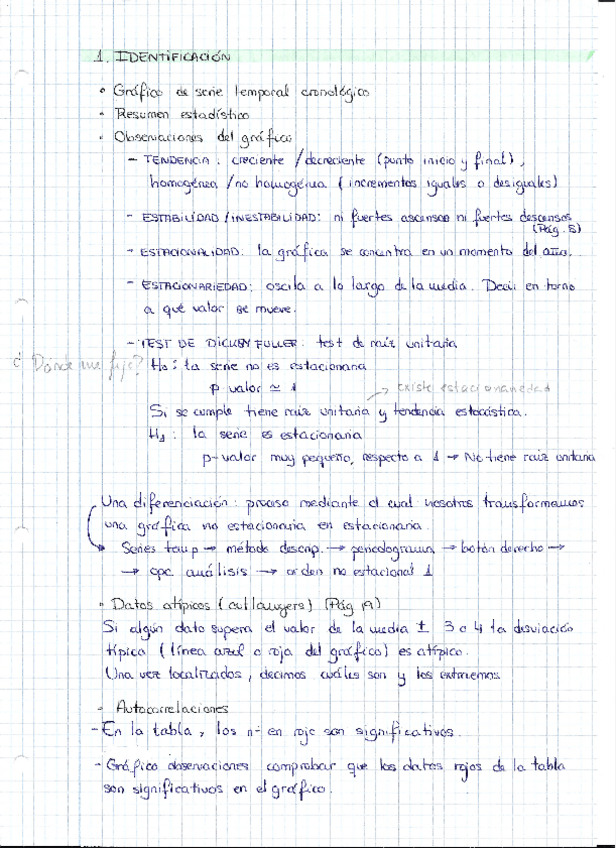 1. IDENTIFICACIÓN
• Gráfico de serie temporal cronológico
• Resumen estadístico
• Observaciones del gráfico
- TENDENCIA: creciente / decreciente (punto inicio y final),
homogénea / no homogénea (incrementos iguales o desiguales)
- ESTABILIDAD / INESTABILIDAD: ni fuertes ascensos ni fuertes descensos
(Pág. 5)
- ESTACIONALIDAD: la gráfica se concentra en un momento del año.
- ESTACIONARIEDAD: oscila a lo largo de la media. Decir en torno
a qué valor se mueve.
- TEST DE DICKEY FULLER: test de raíz unitaria
¿Dónde me fijo? H0: la serie no es estacionaria
p valor ≃ 1
→ existe estacionariedad
Si se cumple tiene raíz unitaria y tendencia estocástica.
H1: la serie es estacionaria
p-valor muy pequeño, respecto a 1 → No tiene raíz unitaria
Una diferenciación: proceso mediante el cual nosotros transformamos
una gráfica no estacionaria en estacionaria.
→ Series temp → método descrip. → periodograma → botón derecho →
→ opc análisis → orden no estacional 1
• Datos atípicos (outlawyers) (Pág 19)
Si algún dato supera el valor de la media ± 3 o 4 la desviación
típica (línea azul o roja del gráfico) es atípico.
Una vez localizados, decimos cuáles son y los extraemos
• Autocorrelaciones
- En la tabla, los nº en rojo son significativos.
- Gráfico observaciones comprobar que los datos rojos de la tabla
son significativos en el gráfico.